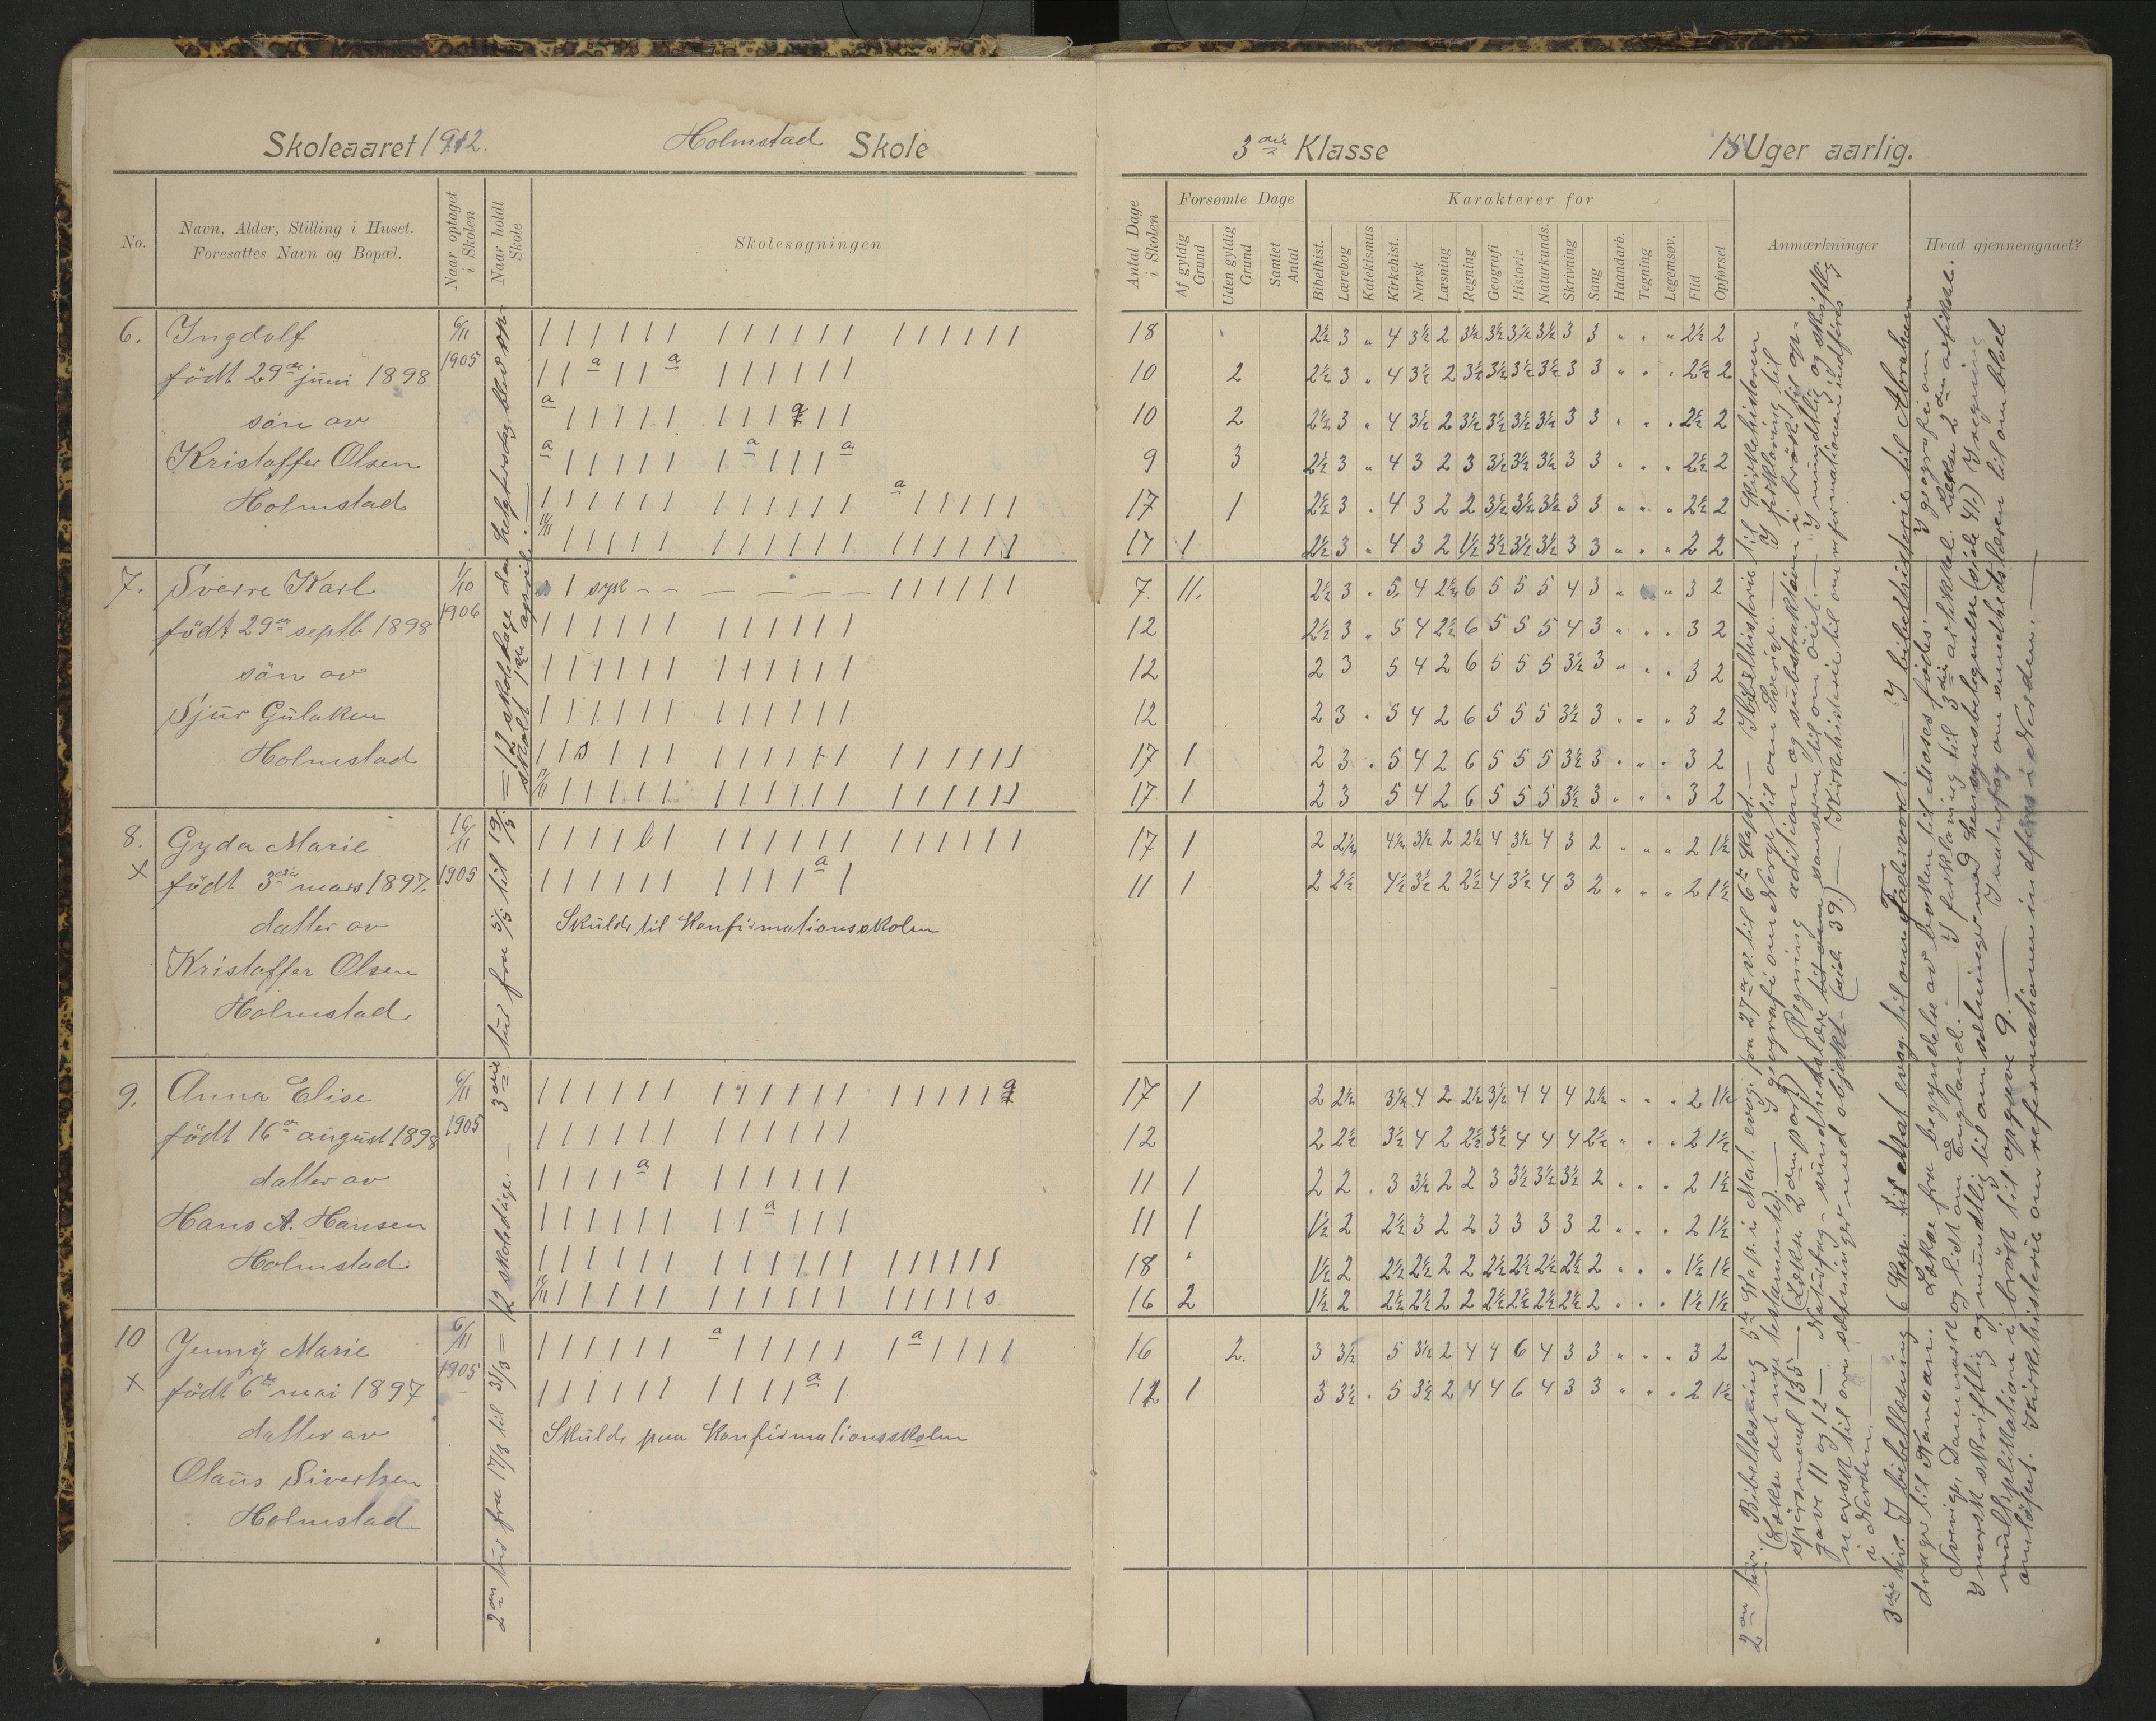 Skoleaaret 1912. Holmstad Skole
No.
Navn, Alder, Stilling i Huset.
Foresattes Navn og Bopæl.
Naar optaget
i Skolen
Naar holdt
Skole
Skolesøgningen
6. Ingdolf 6/11
1905
födt 29de juni 1898
sön av
Kristoffer Olsen
Holmstad
7. Sverre Karl 1/10
1906
syk
födt 29de septb 1898
sön av
Sjur Gulaken
Holmstad
8. Gyda Marie 16/11
1905
× födt 3die mars 1897.
datter av
Skulde til Konfirmationsskolen
Kristoffer Olsen
Holmstad
9. Anna Elise 6/11
1905
födt 16de august 1898
datter av
Hans A. Hansen
Holmstad
10 Jenny Marie 6/11
1905
× födt 6te mai 1897
datter av
Skulde paa Konfirmationsskolen
Olaus Sivertsen
Holmstad
2den tur fra 17/3 til 31/3 = 12 skoledage. — 3die tur fra 5/5 til 19/5 = 12 skoledage
3die Klasse 15 Uger aarlig.
Antal Dage
i Skolen
Forsømte Dage
Af gyldig
Grund
Uden gyldig
Grund
Samlet
Antal
Karakterer for
Bibelhist.
Lærebog
Katekismus
Kirkehist.
Norsk
Læsning
Regning
Geografi
Historie
Naturkunds.
Skrivning
Sang
Haandarb.
Tegning
Legemsøv.
Flid
Opførsel
Anmærkninger
Hvad gjennemgaaet?
18 2½ 3 " 4 3½ 2 3½ 3½ 3½ 3½ 3 3 " " " 2½ 2
10 2 2½ 3 " 4 3½ 2 3½ 3½ 3½ 3½ 3 3 " " " 2½ 2
10 2 2½ 3 " 4 3½ 2 3½ 3½ 3½ 3½ 3 3 " " " 2½ 2
9 3 2½ 3 " 4 3 2 3 3½ 3½ 3½ 3 3 " " " 2½ 2
17 1 2½ 3 " 4 3 2 2 3½ 3½ 3½ 3 3 " " " 2½ 2
17 1 2½ 3 " 4 3 2 1½ 3½ 3½ 3½ 3 3 " " " 2 2
7. 11. 2½ 3 " 5 4 2½ 6 5 5 5 4 3 " " " 3 2
12 2½ 3 " 5 4 2½ 6 5 5 5 4 3 " " " 3 2
12 2 3 5 4 2 6 5 5 5 3½ 3 " " " 3 2
12 2 3 " 5 4 2 6 5 5 5 3½ 3 " " " 3 2
17 1 2 3 " 5 4 2 6 5 5 5 3½ 3 " " " 3 2
17 1 2 3 5 4 2 6 5 5 5 3½ 3 " " " 3 2
17 1 2 2½ 4½ 3½ 2 2½ 4 3½ 4 3 2 " " " 2 1½
11 1 2 2½ 4½ 3½ 2 2½ 4 3½ 4 3 2 " " " 2 1½
17 1 2 2½ 3½ 4 2 2½ 3½ 4 4 4 2½ " " " 2 1½
12 2 2½ 3½ 4 2 2½ 3½ 4 4 4 2½ " " " 2 1½
11 1 2 2 " 3 3½ 2 2 3 3½ 3½ 3½ 2 " " " 2 1½
11 1 1½ 2 2½ 3 2 2 3 3 3 3 2 " " " 2 1½
18 " 1½ 2 2½ 2½ 2 2 2½ 2½ 2½ 2½ 2 " " " 1½ 1½
16 2 1½ 2 2½ 2½ 2 2 2½ 2½ 2½ 2½ 2 " " " 1½ 1½
16 2. 3 3½ 5 3½ 2 4 4 6 4 3 3 " " " 3 2
12 1 3 3½ " 5 3½ 2 4 4 6 4 3 3 " " " 2 1½
2den tur. Bibellæsning 5te Kap. i Mat. evag. fra 27de v. til 6te Kapt. — I Bibelhistorie til Kirkehistorien
(Lekse det nye testamente) — I geografi om Norge til om Sverige. — I forklaring til
spörsmaal 135 — (Lekse 2den part) Regning adition og substraktion i brök til op-
gave 11 og 12 — Naturfag — sundhetslære til om sanserne til om öiet. — I mundtlig og skriftlig
i norsk til om sætninger med objekt (side 39.) — Kirkehistorie til om reformationen indföres
i Norden. —
3die tur. I bibellæsning 6 Kap. i Mat. evag. til om Fadervord. — I bibelhistorie til Abraham
drager til Kanaan. Lekse fra begyndelse av boken til Moses födes. — I geografi om
Sverige, Danmark og lidt om England. — I forklaring til 3die artikkel. Lekse 2den artikkel.
I norsk skriftlig og mundtlig til om sætninger med hensynsbetegnelse (side 41.) I regning
multiplikation i brök til opgave 9. — I naturfag om sundhedslæren til om blod
omlöpet. Kirkehistorie om reformationen indföres i Norden. —